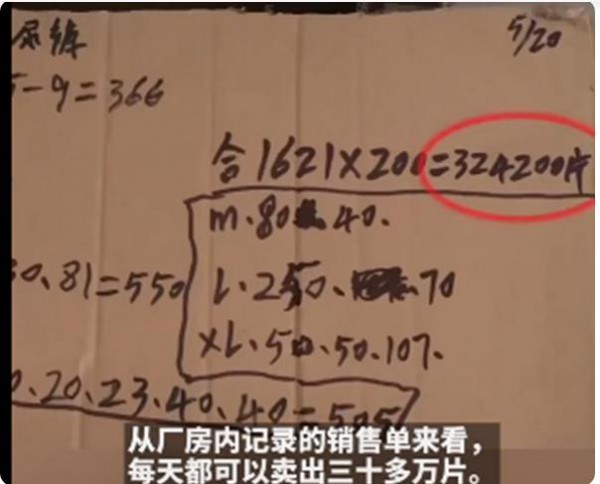 尿裤
5/20
-9=366
合1621×200=324200片
m.80 40.
0、81=550
L.250、 .70
XL、50、50.107.
0、20、23、40、40=505
从厂房内记录的销售单来看，
每天都可以卖出三十多万片。